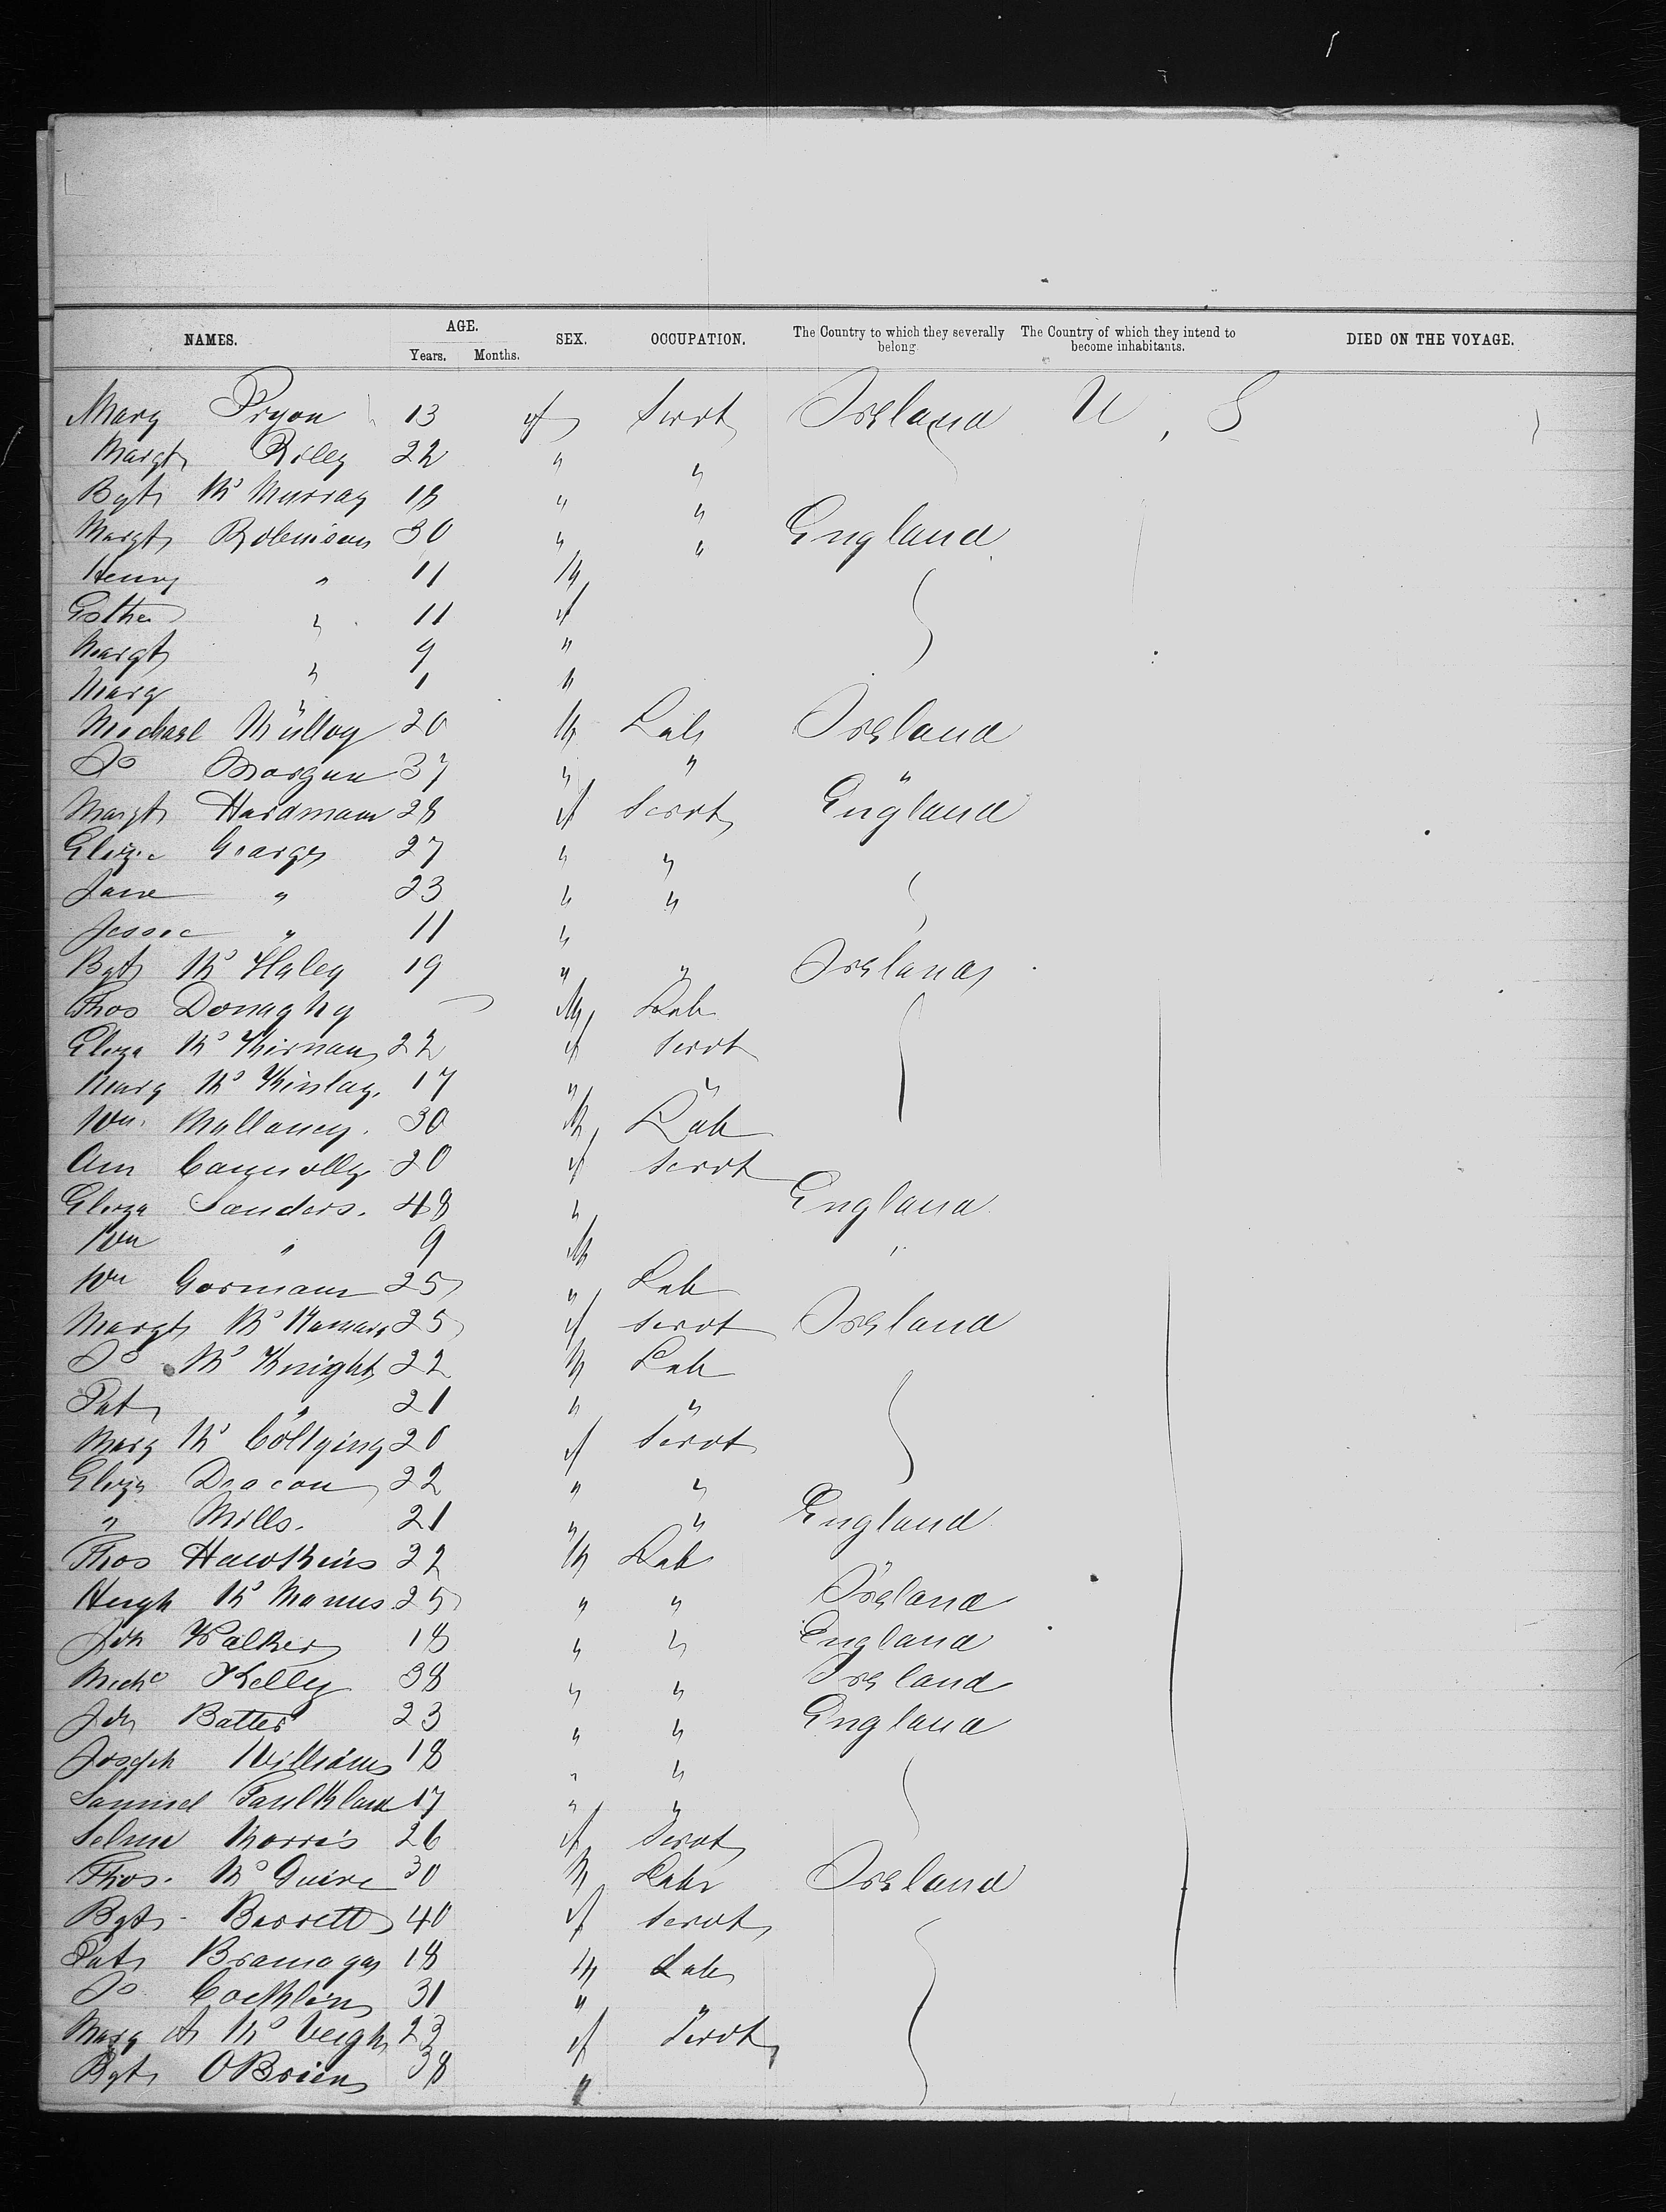 NAMES. AGE. SEX. OCCUPATION. The Country to which they severally belong. The Country of which they intend to become inhabitants. DIED ON THE VOYAGE.
Years. Months.
Mary Pryon 13 f Servt Ireland U, S
Margt Riley 22 " "
Bgt Mc Murray 18 " "
Margt Robinson 30 " " England
Henry " 11 M
Esther " 11 f
Margt " 9 "
Mary " 1 "
Michael Mulloy 20 M Lab Ireland
Do Morgan 37 " " "
Margt Hardman 28 f Servt England
Eliza George 27 " "
Jane " 23 " "
Jessie " 11 "
Bgt Mc Haley 19 " " Ireland
Thos Donaghy M Lab
Eliza Mc Kirnan 22 f Servt
Mary Mc Kinlay. 17 " "
Wm. Mallaney. 30 M Lab
Ann Connolly 20 f Servt
Eliza Sanders. 48 " England
Wm " 9 M "
Wm Gorman 25 " Lab
Margt Mc 25 f Servt Ireland
Do Mc Knight 22 M Lab
Pat " 21 " "
Mary Mc 20 f Servt
Eliza Deacon 22 " "
" Mills. 21 " " England
Thos Hawkins 22 M Lab
Hugh Mc Manus 25 " " Ireland
Jn Walker 18 " " England
Michl Kelly 38 " " Ireland
Jn Batter 23 " " England
Joseph Williams 18 " "
Samuel 17 " "
Selma Morris 26 f Servt
Thos. Mc Guire 30 M Labr Ireland
Bgt Barrett 40 f Servt
Pat 18 M Lab
Do Cochlin 31 " "
Mary A Mc Veigh 23 f Servt
Bgt OBrien 38 "